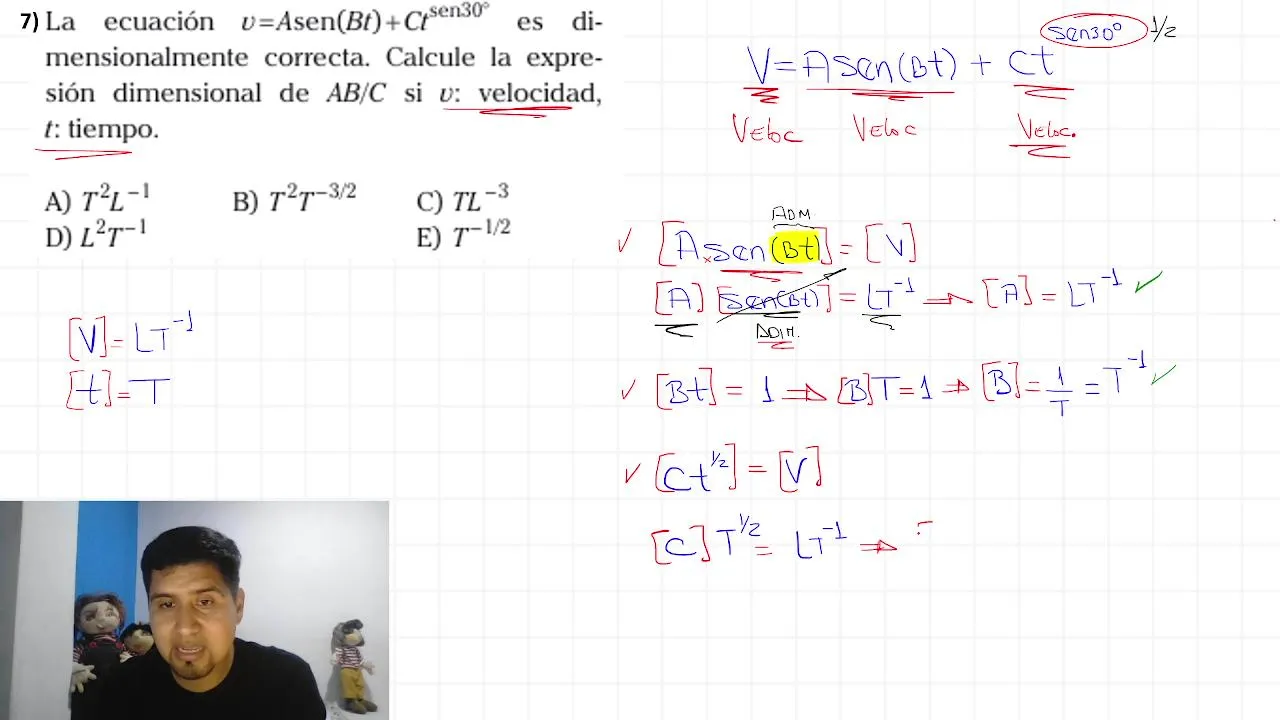 7) La ecuación v=Asen(Bt)+Ct^sen30° es di-
mensionalmente correcta. Calcule la expre-
sión dimensional de AB/C si v: velocidad,
t: tiempo.
A) T²L⁻¹ B) T²T^-3/2 C) TL⁻³
D) L²T⁻¹ E) T^-1/2
[V] = LT⁻¹
[t] = T
sen30° 1/2
V = A sen(Bt) + Ct
VEloc VEloc VEloc.
ADM
✓ [A×sen(Bt)] = [V]
[A] [sen(Bt)] = LT⁻¹ → [A] = LT⁻¹ ✓
ADIM.
✓ [Bt] = 1 ⇒ [B]T = 1 ⇒ [B] = 1/T = T⁻¹ ✓
✓ [Ct^1/2] = [V]
[C] T^1/2 = LT⁻¹ ⇒